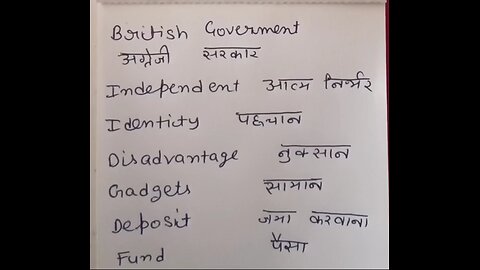 British Goverment
अग्रेजी सरकार
Independent आत्म निर्भर
Identity पहचान
Disadvantage नुकसान
Gadgets सामान
Deposit जमा करवाना
Fund पैसा